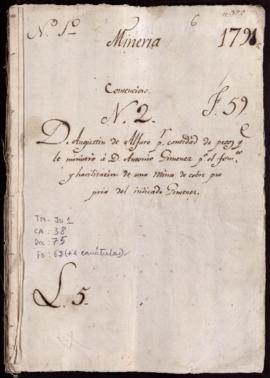 N.º 1º 6
Mineria 1791
Contencioso
N. 2. F. 59
D. Augustin de Alfaro pr. cantidad de pesos qe
le ministro á D. Antonio Gimenez pa. el fomo.
y havilitacion de una Mina de cobre pro
pria del indicado Gimenez.
TM-JU 1
CA: 38
DOC: 75
FS: 63 (+2 carátulas)
L. 5.